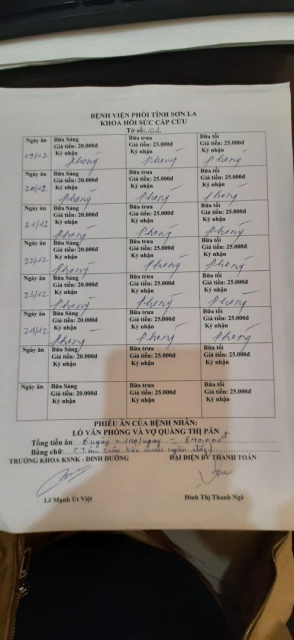 BỆNH VIỆN PHỔI TỈNH SƠN LA
KHOA HỒI SỨC CẤP CỨU
Tờ số:
Ngày ăn Bữa Sáng Bữa trưa Bữa tối
Giá tiền: 20.000đ Giá tiền: 25.000đ Giá tiền: 25.000đ
19/12 Ký nhận Ký nhận Ký nhận
Phong Phong Phong
Ngày ăn Bữa Sáng Bữa trưa Bữa tối
Giá tiền: 20.000đ Giá tiền: 25.000đ Giá tiền: 25.000đ
20/12 Ký nhận Ký nhận Ký nhận
Phong Phong Phong
Ngày ăn Bữa Sáng Bữa trưa Bữa tối
Giá tiền: 20.000đ Giá tiền: 25.000đ Giá tiền: 25.000đ
21/12 Ký nhận Ký nhận Ký nhận
Phong Phong Phong
Ngày ăn Bữa Sáng Bữa trưa Bữa tối
Giá tiền: 20.000đ Giá tiền: 25.000đ Giá tiền: 25.000đ
22/12 Ký nhận Ký nhận Ký nhận
Phong Phong Phong
Ngày ăn Bữa Sáng Bữa trưa Bữa tối
Giá tiền: 20.000đ Giá tiền: 25.000đ Giá tiền: 25.000đ
23/12 Ký nhận Ký nhận Ký nhận
Phong Phong Phong
Ngày ăn Bữa Sáng Bữa trưa Bữa tối
Giá tiền: 20.000đ Giá tiền: 25.000đ Giá tiền: 25.000đ
24/12 Ký nhận Ký nhận Ký nhận
Phong Phong Phong
Ngày ăn Bữa Sáng Bữa trưa Bữa tối
Giá tiền: 20.000đ Giá tiền: 25.000đ Giá tiền: 25.000đ
Ký nhận Ký nhận Ký nhận
Ngày ăn Bữa Sáng Bữa trưa Bữa tối
Giá tiền: 20.000đ Giá tiền: 25.000đ Giá tiền: 25.000đ
Ký nhận Ký nhận Ký nhận
PHIẾU ĂN CỦA BỆNH NHÂN:
LÒ VĂN PHÓNG VÀ VỢ QUÀNG THỊ PÂN
Tổng tiền ăn: 6 ngày
Bằng chữ:
TRƯỞNG KHOA KSNK - DINH DƯỠNG ĐẠI DIỆN BV THANH TOÁN
Lê Mạnh Út Việt Đinh Thị Thanh Ngà